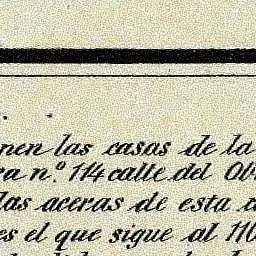 nen las casas de la
ra n.º 114 calle del Ob
las aceras de esta c
es el que sigue al 110